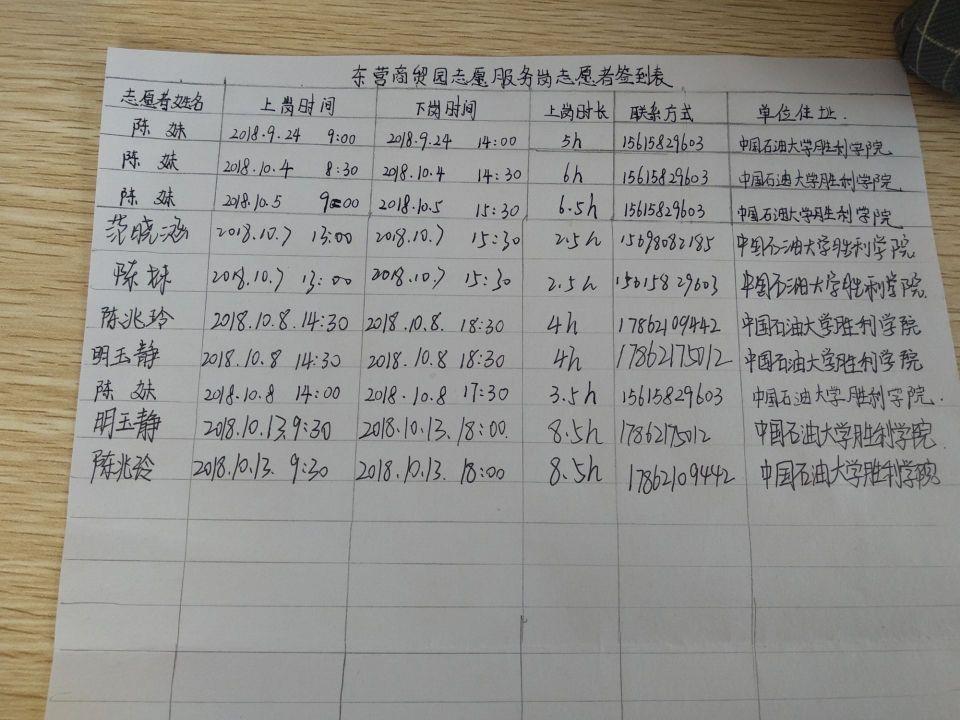 东营商贸园志愿服务岗志愿者签到表
志愿者姓名 上岗时间 下岗时间 上岗时长 联系方式 单位住址.
陈 妹 2018.9.24 9:00 2018.9.24 14:00 5h 15615829603 中国石油大学胜利学院
陈 妹 2018.10.4 8:30 2018.10.4 14:30 6h 15615829603 中国石油大学胜利学院
陈 妹 2018.10.5 9:00 2018.10.5 15:30 6.5h 15615829603 中国石油大学胜利学院
范晓涵 2018.10.7 13:00 2018.10.7 15:30 2.5h 15698082185 中国石油大学胜利学院
陈妹 2018.10.7 13:00 2018.10.7 15:30 2.5h 15615829603 中国石油大学胜利学院.
陈兆玲 2018.10.8.14:30 2018.10.8. 18:30 4h 17862109442 中国石油大学胜利学院
明玉静 2018.10.8 14:30 2018.10.8 18:30 4h 17862175012 中国石油大学胜利学院
陈 妹 2018.10.8 14:00 2018.10.8 17:30 3.5h 15615829603 中国石油大学胜利学院.
明玉静 2018.10.13.9:30 2018.10.13. 18:00. 8.5h 17862175012 中国石油大学胜利学院
陈兆玲 2018.10.13. 9:30 2018.10.13. 18:00 8.5h 17862109442 中国石油大学胜利学院